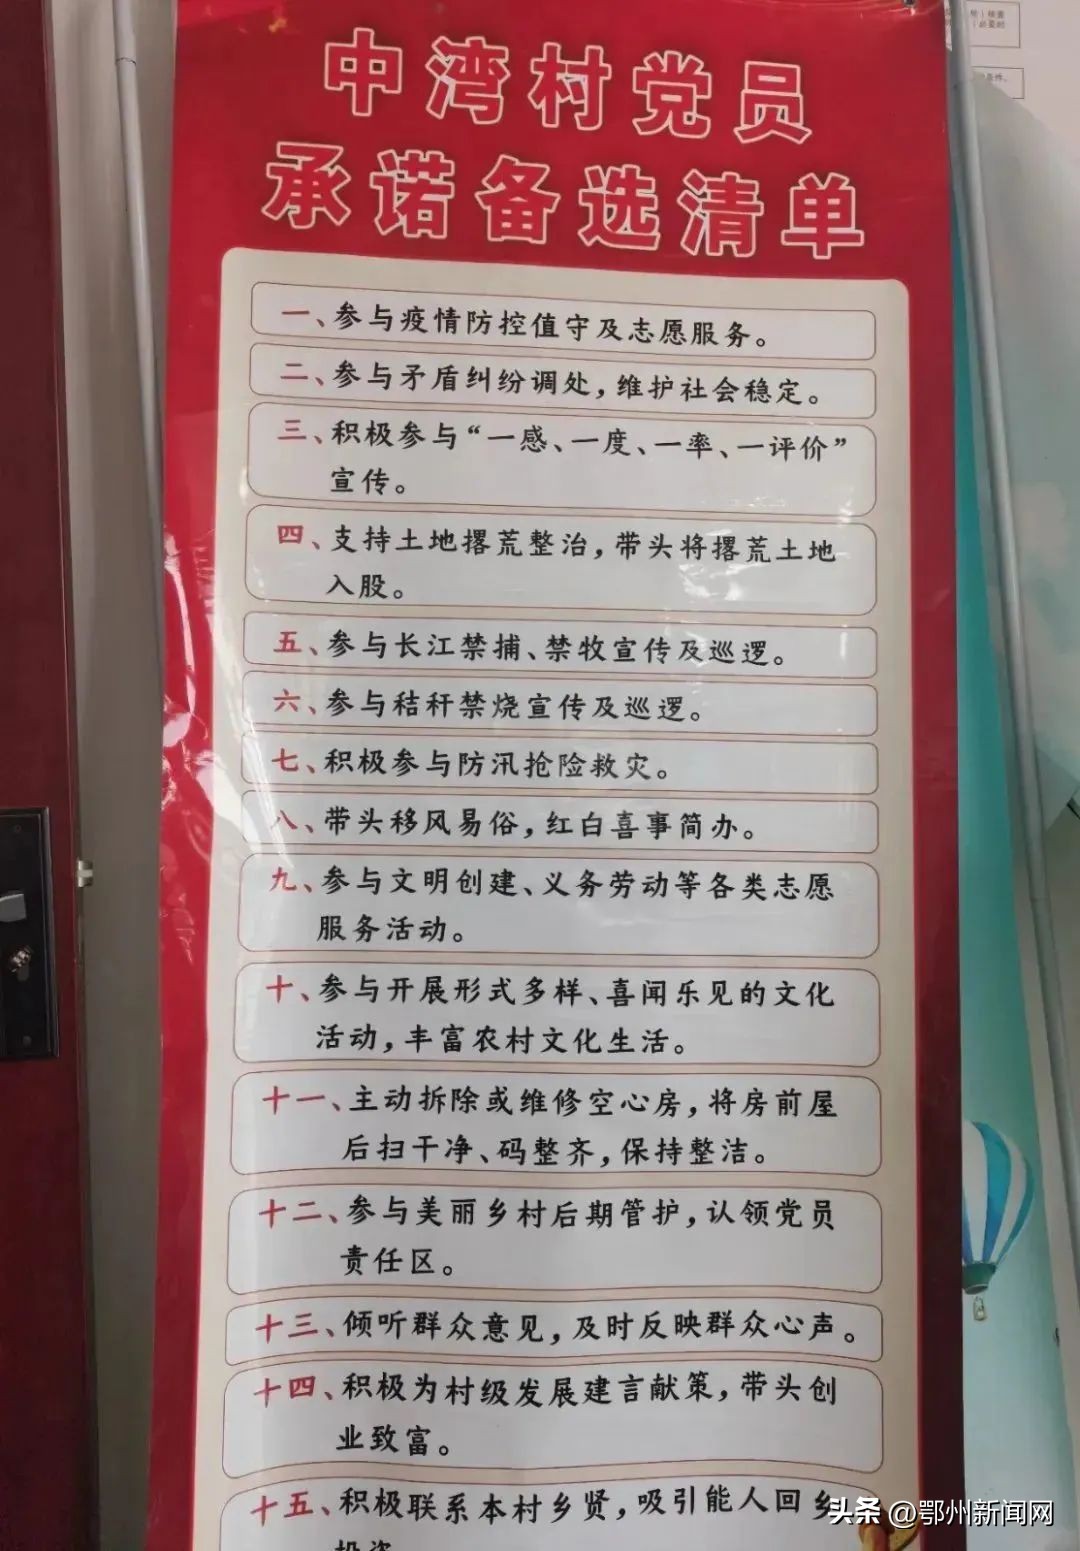 中湾村党员
承诺备选清单
一、参与疫情防控值守及志愿服务。
二、参与矛盾纠纷调处，维护社会稳定。
三、积极参与“一感、一度、一率、一评价”
宣传。
四、支持土地撂荒整治，带头将撂荒土地
入股。
五、参与长江禁捕、禁牧宣传及巡逻。
六、参与秸秆禁烧宣传及巡逻。
七、积极参与防汛抢险救灾。
八、带头移风易俗，红白喜事简办。
九、参与文明创建、义务劳动等各类志愿
服务活动。
十、参与开展形式多样、喜闻乐见的文化
活动，丰富农村文化生活。
十一、主动拆除或维修空心房，将房前屋
后扫干净、码整齐，保持整洁。
十二、参与美丽乡村后期管护，认领党员
责任区。
十三、倾听群众意见，及时反映群众心声。
十四、积极为村级发展建言献策，带头创
业致富。
十五、积极联系本村乡贤，吸引能人回乡
头条 @鄂州新闻网